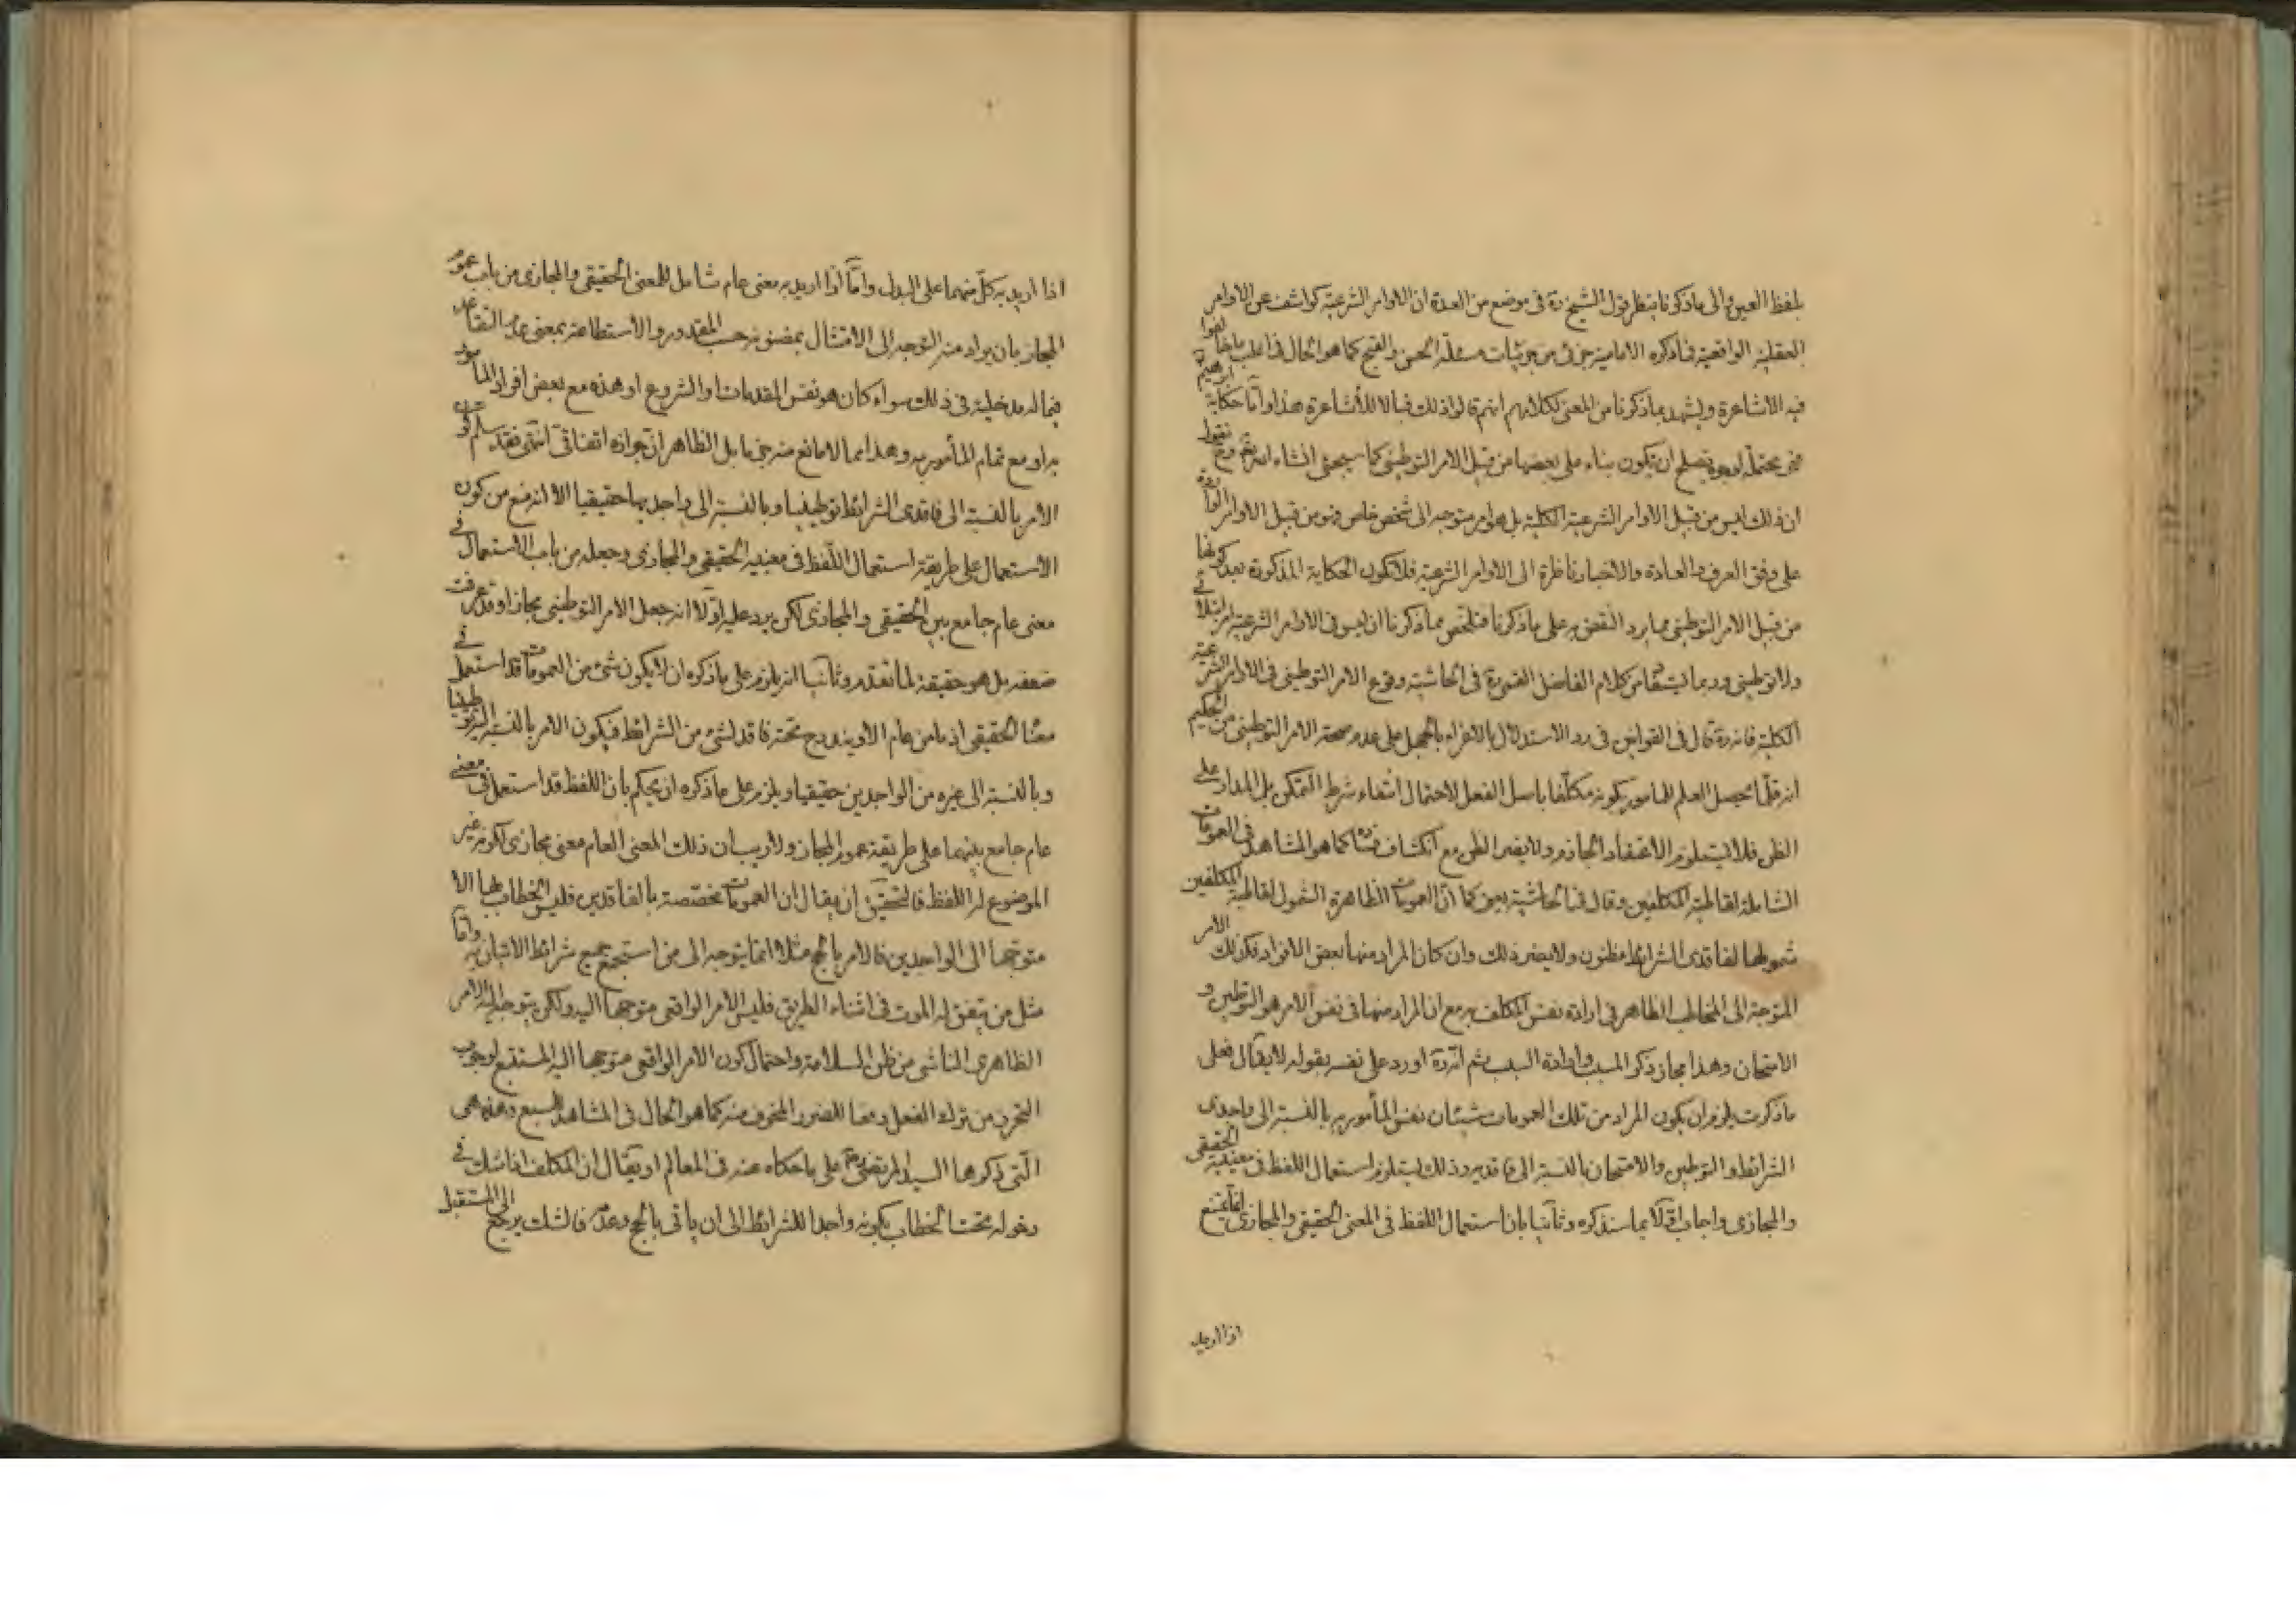 بلفظ العين والى ما ذكرنا ينظر قول الشيخ ره فى موضع من العدة ان الاوامر الشرعية كواشف عن الاوامر
العقلية الواقعية فما ذكره الامامية جزئى من جزئيات مسئلة الحسن والقبح كما هو الحال فى اغلب ما خالفوا
فيه الاشاعرة ويشهد بما ذكرنا من المعنى لكلامهم انهم قالوا ذلك قبالا للاشاعرة هذا واما حكاية ابرهيم
فهى محتملة لوجوه يصلح ان يكون بناء على بعضها من قبيل الامر التوطينى كما سيجئ انشاء الله تع وح نقول
ان ذلك ليس من قبيل الاوامر الشرعية الكلية بل هو امر متوجه الى شخص خاص فهو من قبيل الاوامر الواردة
على وفق العرف والعادة والاخبار ناظرة الى الاوامر الشرعية فلا تكون الحكاية المذكورة بعد كونها
من قبيل الامر التوطينى مما يرد النقض به على ما ذكرنا فتلخص مما ذكرنا ان ليس فى الاوامر الشرعية امر ابتلائى
ولا توطينى وربما يستفاد من كلام الفاضل القمى ره فى الحاشية وقوع الامر التوطينى فى الاوامر الشرعية
الكلية فانه ره قال فى القوانين فى رد الاستدلال بالاغراء بالجهل على عدم صحة الامر التوطينى من الحكيم
انه قلما يحصل العلم للمأمور بكونه مكلفا باصل الفعل لاحتمال انتفاء شرط التمكن بل المدار على
الظن فلا يستلزم الاعتقاد الجازم ولا يضير الظن مع انكشاف فساده كما هو المشاهد فى العمومات
الشاملة لقاطبة المكلفين وقال فى الحاشية يعنى كما ان العمومات الظاهرة الشمول لقاطبة المكلفين
شمولها لفاقدى الشرائط مظنون ولا يضير ذلك وان كان المراد منها بعض الافراد فكذلك الامر
المتوجه الى المخاطب الظاهر فى ارادة نفس المكلف به مع ان المراد منها فى نفس الامر هو التوطين و
الامتحان وهذا مجاز ذكر المسبب وارادة السبب ثم انه ره اورد على نفسه بقوله لا يقال فعلى
ما ذكرت يلزم ان يكون المراد من تلك العمومات شيئان نفس المأمور به بالنسبة الى واجدى
الشرائط والتوطين والامتحان بالنسبة الى فاقديه وذلك يستلزم استعمال اللفظ فى معنييه الحقيقى
والمجازى واجاب اولا بما سنذكره وثانيا بان استعمال اللفظ فى المعنى الحقيقى والمجازى انما يمتنع
اذا اريد
اذا اريد به كل منهما على البدل واما اذا اريد به معنى عام شامل للمعنى الحقيقى والمجازى من باب عموم
المجاز بان يراد منه التوجه الى الامتثال بمضمونه حسب المقدور والاستطاعة بمعنى عدم التقاعد
فيما له مدخلية فى ذلك سواء كان هو نفس المقدمات او الشروع او هذه مع بعض افراد المأمور
به او مع تمام المأمور به وهذا مما لا مانع منه جزما بل الظاهر ان جوازه اتفاقى انتهى فقد سلم ره كون
الامر بالنسبة الى فاقدى الشرائط توطينيا وبالنسبة الى واجديها حقيقيا الا انه منع من كون
الاستعمال على طريقة استعمال اللفظ فى معنييه الحقيقى والمجازى وجعله من باب الاستعمال فى
معنى عام جامع بين الحقيقى والمجازى لكن يرد عليه اولا انه جعل الامر التوطينى مجازا وقد عرفت
ضعفه بل هو حقيقة لما تقدم وثانيا انه يلزم على ما ذكره ان لا يكون شئ من العمومات قد استعمل فى
معناه الحقيقى اذ ما من عام الا ويندرج تحته فاقد لشئ من الشرائط فيكون الامر بالنسبة اليه توطينيا
وبالنسبة الى غيره من الواجدين حقيقيا ويلزم على ما ذكره ان يحكم بان اللفظ قد استعمل فى معنى
عام جامع بينهما على طريقة عموم المجاز ولا ريب ان ذلك المعنى العام معنى مجازى لكونه غير
الموضوع له اللفظ فالتحقيق ان يقال ان العمومات مخصصة بالفاقدين فليس الخطاب بها الا
متوجها الى الواجدين فالامر بالحج مثلا انما يتوجه الى من استجمع جميع شرائط الاتيان به واما
مثل من يتفق له الموت فى اثناء الطريق فليس الامر الواقعى متوجها اليه ولكن يتوجه اليه الامر
الظاهرى الناشى من ظن السلامة واحتمال كون الامر الواقعى متوجها اليه المستتبع لوجوب
التحرز من ترك الفعل دفعا للضرر المخوف منه كما هو الحال فى المشاهد للسبع وهذه هى
التى ذكرها السيد المرتضى ره على ما حكاه عنه فى المعالم او يقال ان المكلف اذا شك فى
دخوله تحت الخطاب بكونه واجدا للشرائط الى ان ياتى بالحج وعدمه فالشك يرجع الى المستقبل